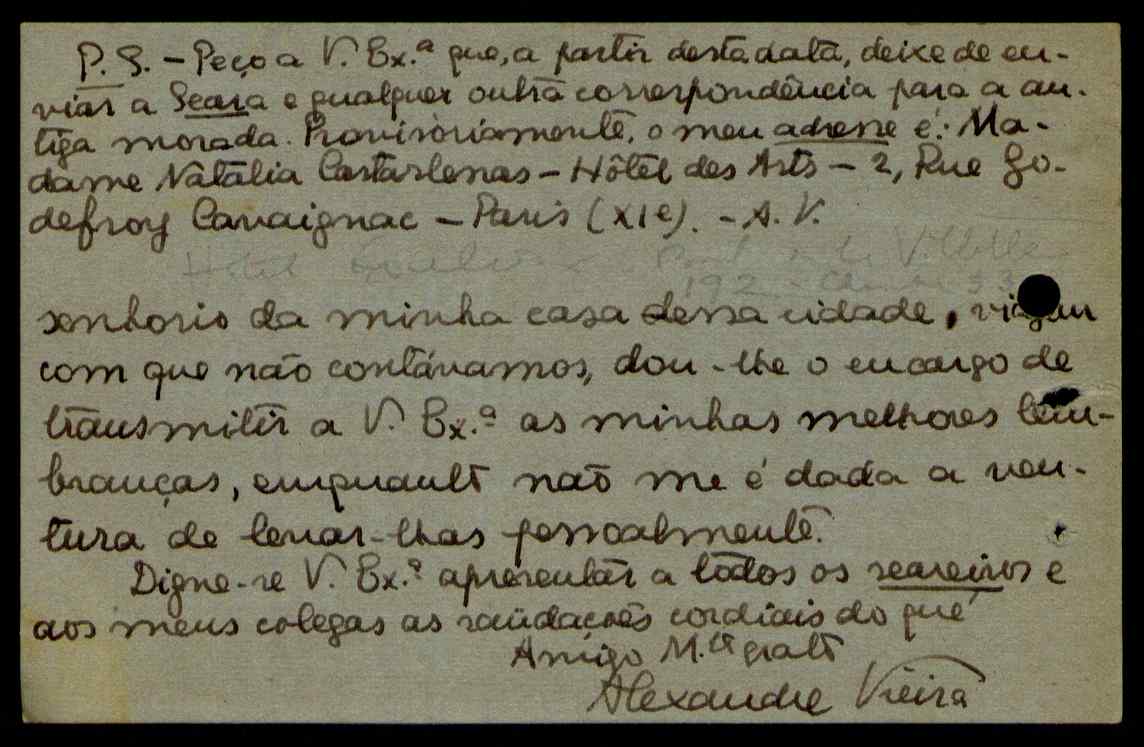 P. S. - Peço a V. Ex.ª que, a partir desta data, deixe de en-
viar a Seara e qualquer outra correspondência para a an-
tiga morada. Provisòriamente, o meu adresse é: Ma-
dame Natália Castarlenas - Hôtel des Arts - 2, Rue Go-
defroy Cavaignac - Paris (XIe). - A. V.
Hôtel
192
senhorio da minha casa dessa cidade, viagem
com que não contávamos, dou-lhe o encargo de
transmitir a V. Ex.ª as minhas melhores lem-
branças, enquanto não me é dada a ven-
tura de levar-lhas pessoalmente.
Digne-se V. Ex.ª apresentar a todos os seareiros e
aos meus colegas as saüdações cordiais do que é
Amigo M.to grato
Alexandre Vieira